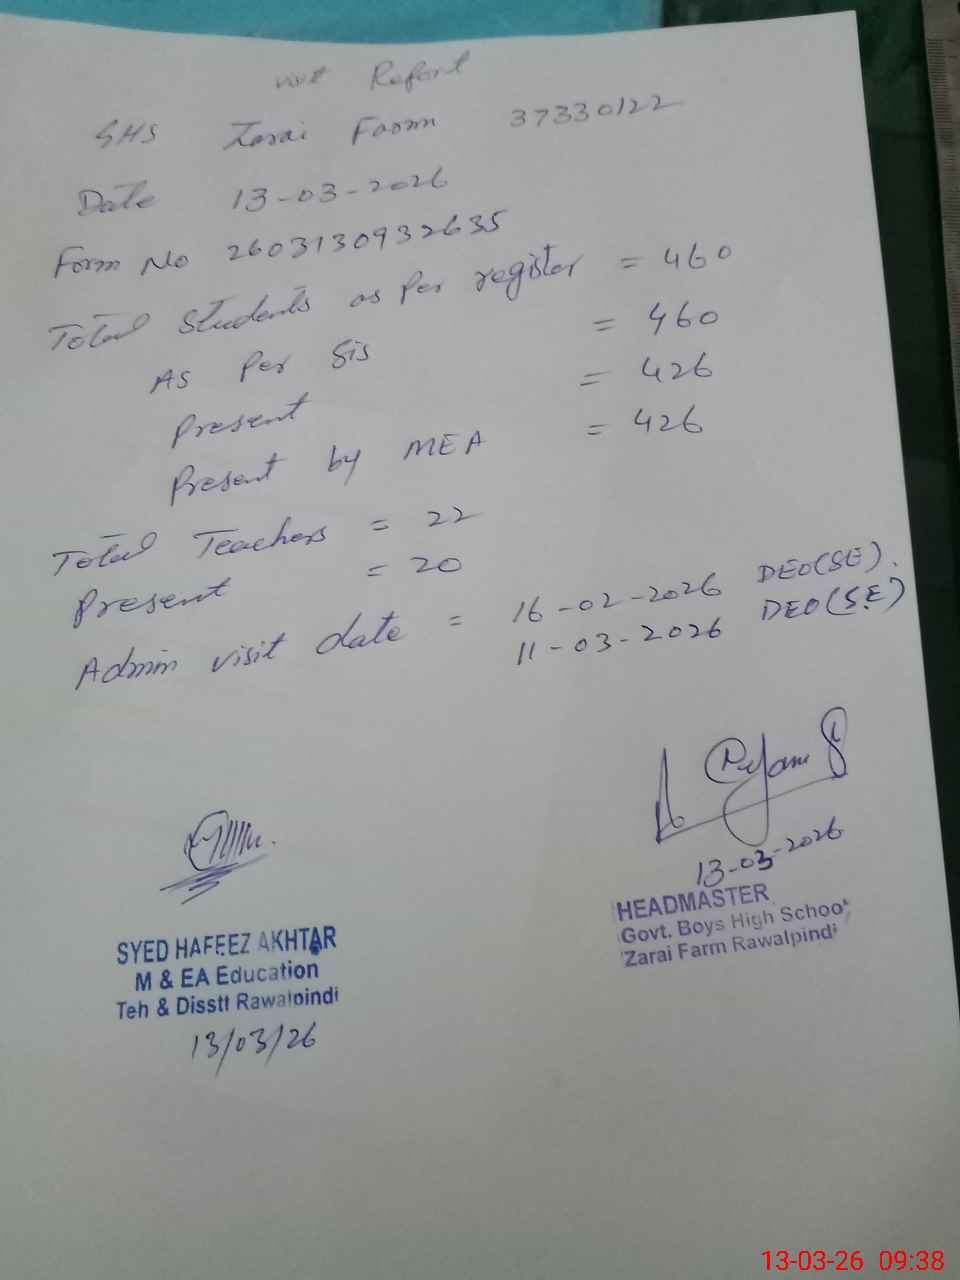 visit Report
GHS Zarai Farm 37330122
Date 13-03-2026
Form No 2603130932635
Total Students as Per register = 460
As Per Sis = 460
Present = 426
Present by MEA = 426
Total Teachers = 22
Present = 20
Admin visit date = 16-02-2026 DEO(SE).
11-03-2026 DEO(S.E)
13-03-2026
HEADMASTER
Govt. Boys High School
Zarai Farm Rawalpindi
SYED HAFEEZ AKHTAR
M & EA Education
Teh & Disstt Rawalpindi
13/03/26
13-03-26 09:38